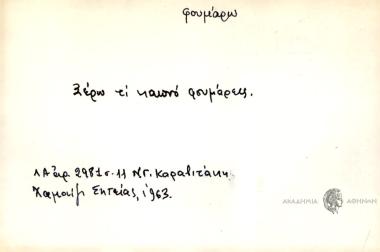 φουμάρω
Ξέρω τί καπνό φουμάρεις.
ΛΑ ἀρ. 2981 σ. 11 Ν. Γ. Καραβιτάκη
Χαμαίζι Σητείας, 1963.
ΑΚΑΔΗΜΙΑ ΑΘΗΝΩΝ